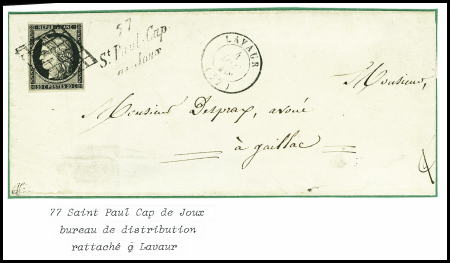 REPUB. FRANC.
20 C POSTES 20 C
77
St Paul-Cap
de-Joux
LAVAUR
Monsieur,
Monsieur Despray, avoué
à gaillac
77 Saint Paul Cap de Joux
bureau de distribution
rattaché à Lavaur